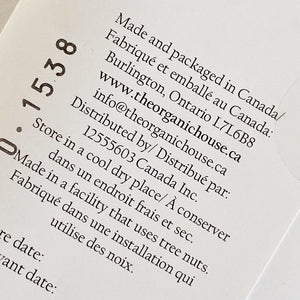 Made and packaged in Canada/
Fabriqué et emballé au Canada:
Burlington, Ontario L7L6B8
www.theorganichouse.ca
info@theorganichouse.ca
Distributed by/ Distribué par:
12555603 Canada Inc.
Store in a cool dry place/ À conserver
dans un endroit frais et sec.
Made in a facility that uses tree nuts.
Fabriqué dans une installation qui
utilise des noix.
re date:
vant date:
0.1538